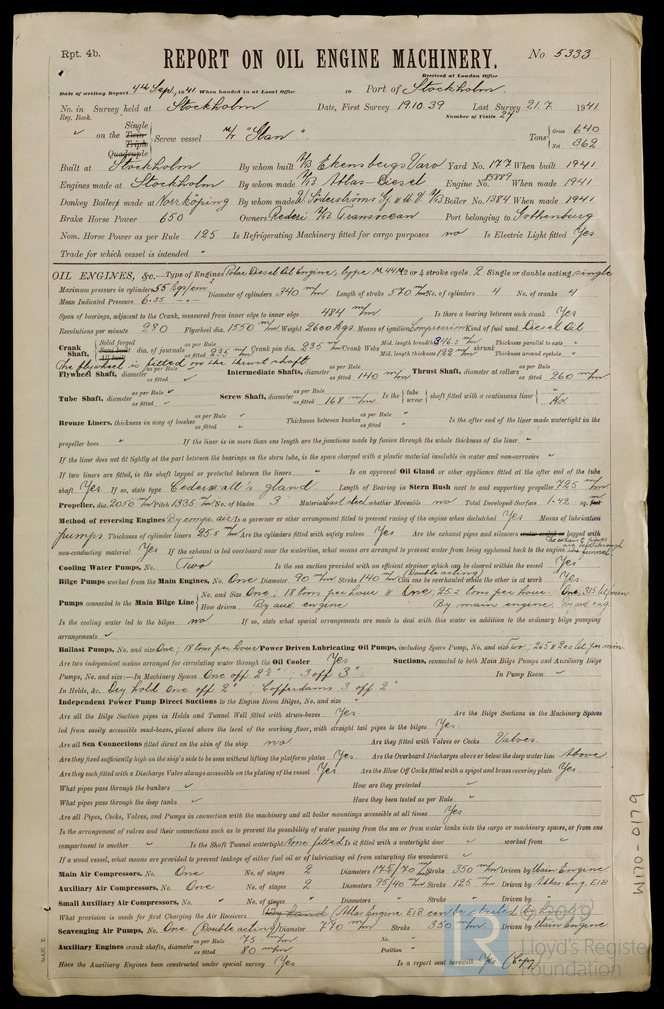 Rpt. 4b.
REPORT ON OIL ENGINE MACHINERY.
No 5333
Received at London Office
Date of writing Report 4th Sep. 1941 When handed in at Local Office 10 Port of Stockholm.
No. in Survey held at Stockholm Date, First Survey 19.10.39 Last Survey 21.7. 1941
Reg. Book. Number of Visits 24
on the Single Twin Triple Quadruple Screw vessel M/T "Stan" Tons Gross 640 Net 362
Built at Stockholm By whom built A/B Ekensbergs Varv Yard No. 177 When built 1941
Engines made at Stockholm By whom made A/B Atlas-Diesel Engine No. 13889 When made 1941
Donkey Boilers made at Norrköping By whom made Boiler No. 1384 When made 1941
Brake Horse Power 650 Owners Rederi A/B Transocean Port belonging to Gothenburg
Nom. Horse Power as per Rule 125 Is Refrigerating Machinery fitted for cargo purposes no Is Electric Light fitted Yes
Trade for which vessel is intended "
OIL ENGINES, &c.—Type of Engines Polar Diesel Oil Engine, type M44M 2 or 4 stroke cycle 2 Single or double acting single
Maximum pressure in cylinders 55 kgs/cm² Diameter of cylinders 340 m/m Length of stroke 570 m/m No. of cylinders 4 No. of cranks 4
Mean Indicated Pressure 6.35 -"-
Span of bearings, adjacent to the Crank, measured from inner edge to inner edge 484 m/m Is there a bearing between each crank Yes
Revolutions per minute 280 Flywheel dia. 1550 m/m Weight 2600 kgs. Means of ignition Compression Kind of fuel used Diesel Oil
Crank Shaft, Solid forged Semi built All built dia. of journals as per Rule as fitted 235 m/m Crank pin dia. 235 m/m Crank Webs Mid. length breadth 346.5 m/m Mid. length thickness 123 m/m shrunk Thickness parallel to axis Thickness around eyehole
The flywheel is fitted on the thrust shaft.
Flywheel Shaft, diameter as per Rule as fitted Intermediate Shafts, diameter as per Rule as fitted 140 m/m Thrust Shaft, diameter at collars as per Rule as fitted 260 m/m
Tube Shaft, diameter as per Rule as fitted Screw Shaft, diameter as per Rule as fitted 168 m/m Is the tube screw shaft fitted with a continuous liner No.
Bronze Liners, thickness in way of bushes as per Rule as fitted Thickness between bushes as per Rule as fitted Is the after end of the liner made watertight in the
propeller boss " If the liner is in more than one length are the junctions made by fusion through the whole thickness of the liner "
If the liner does not fit tightly at the part between the bearings in the stern tube, is the space charged with a plastic material insoluble in water and non-corrosive
If two liners are fitted, is the shaft lapped or protected between the liners " Is an approved Oil Gland or other appliance fitted at the after end of the tube
shaft Yes If so, state type Cederwall's gland Length of Bearing in Stern Bush next to and supporting propeller 725 m/m
Propeller, dia. 2050 m/m Pitch 1335 m/m No. of blades 3 Material Cast steel whether Moveable no Total Developed Surface 1.42 sq. feet
Method of reversing Engines By compr. air Is a governor or other arrangement fitted to prevent racing of the engine when declutched Yes Means of lubrication
pumps Thickness of cylinder liners 25.5 m/m Are the cylinders fitted with safety valves Yes Are the exhaust pipes and silencers water cooled or lagged with
non-conducting material Yes If the exhaust is led overboard near the waterline, what means are arranged to prevent water from being syphoned back to the engine
Cooling Water Pumps, No. Two Is the sea suction provided with an efficient strainer which can be cleared within the vessel Yes
Bilge Pumps worked from the Main Engines, No. One Diameter 90 m/m Stroke 140 m/m Double acting Can one be overhauled while the other is at work Yes.
Pumps connected to the Main Bilge Line No. and Size One; 18 tons per hour & One, 25.2 tons per hour. One,
How driven By aux. engine By main engine. by aux. eng.
Is the cooling water led to the bilges no If so, state what special arrangements are made to deal with this water in addition to the ordinary bilge pumping
arrangements
Ballast Pumps, No. and size One; 18 tons per hour Power Driven Lubricating Oil Pumps, including Spare Pump, No. and size Two;
Are two independent means arranged for circulating water through the Oil Cooler Yes Suctions, connected to both Main Bilge Pumps and Auxiliary Bilge
Pumps, No. and size:—In Machinery Spaces One off 2½"; 3 off 3" In Pump Room
In Holds, &c. Dry hold One off 2"; Cofferdams 3 off 2"
Independent Power Pump Direct Suctions to the Engine Room Bilges, No. and size
Are all the Bilge Suction pipes in Holds and Tunnel Well fitted with strum-boxes Yes Are the Bilge Suctions in the Machinery Spaces
led from easily accessible mud-boxes, placed above the level of the working floor, with straight tail pipes to the bilges Yes.
Are all Sea Connections fitted direct on the skin of the ship no Are they fitted with Valves or Cocks Valves.
Are they fixed sufficiently high on the ship's side to be seen without lifting the platform plates Yes Are the Overboard Discharges above or below the deep water line Above
Are they each fitted with a Discharge Valve always accessible on the plating of the vessel Yes Are the Blow Off Cocks fitted with a spigot and brass covering plate Yes
What pipes pass through the bunkers How are they protected
What pipes pass through the deep tanks Have they been tested as per Rule
Are all Pipes, Cocks, Valves, and Pumps in connection with the machinery and all boiler mountings accessible at all times Yes
Is the arrangement of valves and their connections such as to prevent the possibility of water passing from the sea or from water tanks into the cargo or machinery spaces, or from one
compartment to another Is the Shaft Tunnel watertight None fitted. Is it fitted with a watertight door worked from
If a wood vessel, what means are provided to prevent leakage of either fuel oil or of lubricating oil from saturating the woodwork
Main Air Compressors, No. One No. of stages 2 Diameters 175/70 m/m Stroke 350 m/m Driven by Main Engine
Auxiliary Air Compressors, No. One No. of stages 2 Diameters 95/40 m/m Stroke 125 m/m Driven by Atlas Eng. E1B
Small Auxiliary Air Compressors, No. " No. of stages Diameters Stroke Driven by
What provision is made for first Charging the Air Receivers By hand (Atlas Engine E1B can be started by hand)
Scavenging Air Pumps, No. One (Double acting) Diameter 770 m/m Stroke 350 m/m Driven by Main Engine
Auxiliary Engines crank shafts, diameter as per Rule 75 m/m as fitted 80 m/m No. Position
Have the Auxiliary Engines been constructed under special survey Yes Is a report sent herewith Yes (Copy)
W170-0179
© 2019
LR
Lloyd's Register
Foundation